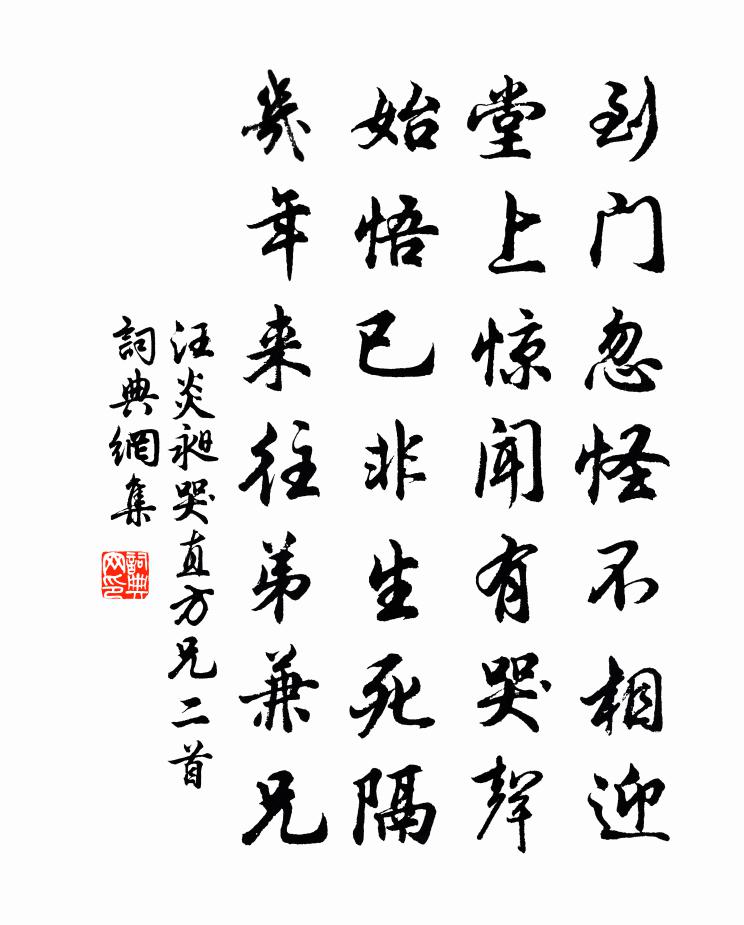 到门忽怪不相迎
堂上惊闻有哭聲
始悟已非生死隔
幾年来往弟兼兄
汪炎昶哭直方兄二首
詞典網集
詞典网印